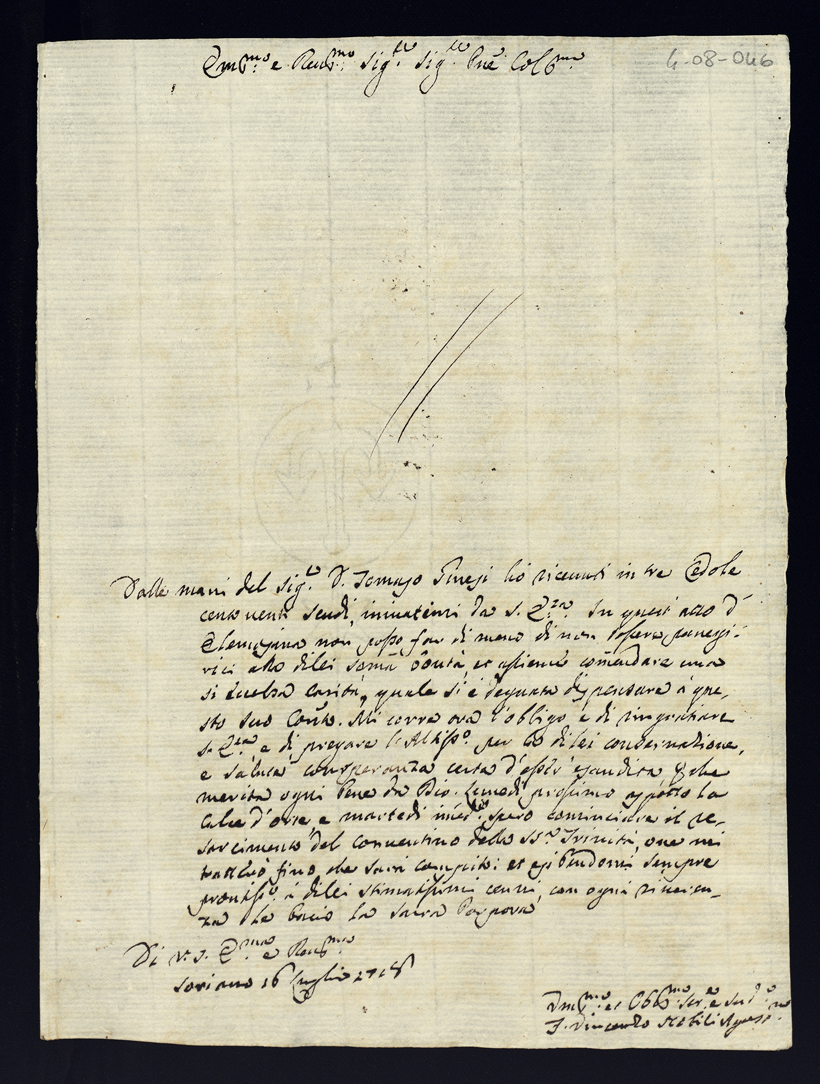 Em.mo e Rev.mo Sig.re Sig.re Pne Col.mo
4-08-046
Dalle mani del Sig.re D. Tomaso Pinesi hò ricevuti in tre Cedole
cento venti scudi, inviatimi da S. E.za In quest' atto d'
Elemosina non posso far di meno di non tesser panegi:
rici alla di lei somã bontà, et assieme comẽndare una
sì eccelsa carità, quale si è degnata dispensare à que-
sto suo Conto. Mi corre ora l'obligo è di ringratiare
S. E.za e di pregare l'Altiss.o per la di lei conservazione,
e salute con speranza certa d'esser' esaudita, che
merita ogni bene da Dio. Lunedì prossimo aspetto la
calce d'Orte e martedì spero cominciare il re-
sarcimento del conventino della SS.ma Trinità, ove mi
tratterò fino che sarà compito: et esibendomi sempre
prontiss.o à di lei stimatissimi cenni, con ogni riveren-
za le bacio la Sacra Porpora
Di V. S. E.ma e Rev.ma
Soriano 16 Luglio 1718
Um.mo et Obb.mo Ser.e e Sud.o
F. Vincenzo